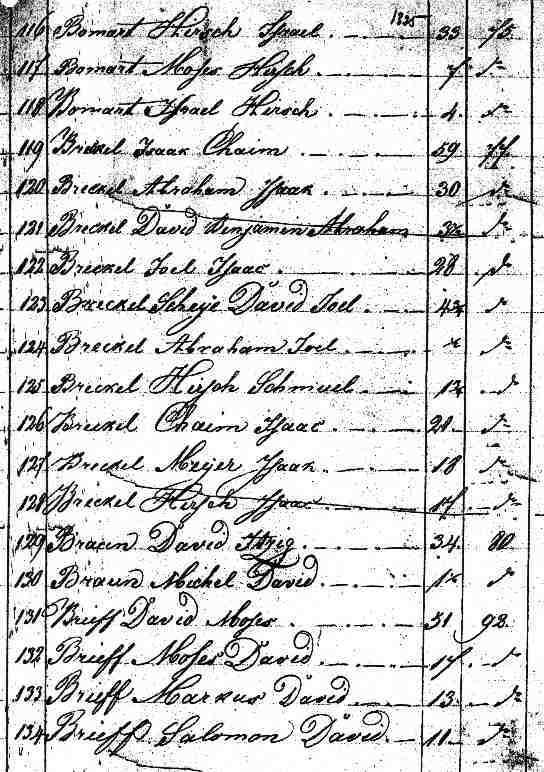 1835
116 Bomart Hirsch Israel. 33 75
117 Bomart Moses Hirsch. 7 do
118 Bomart Israel Hirsch 4. do
119 Breckel Isaak Chaim 59 77
120 Breckel Abraham Isaak. 30 do
121 Breckel David Benjamen Abraham do
122 Breckel Joel Isaac. 28 do
123 Breckel Scheje David Joel do
124 Breckel Abraham Joel do
125 Breckel Hirsch Schmuel do
126 Breckel Chaim Isaac do
127 Breckel Meijer Isaak 18 do
128 Breckel Hirsch Isaac 17. do
129 Braun David 34. 80
130 Braun Michel David. do
131 Brieff David Moses. 51 92
132 Brieff Moses David 17. do
133 Brieff Markus David 13 do
134 Brieff Salomon David. 11 do